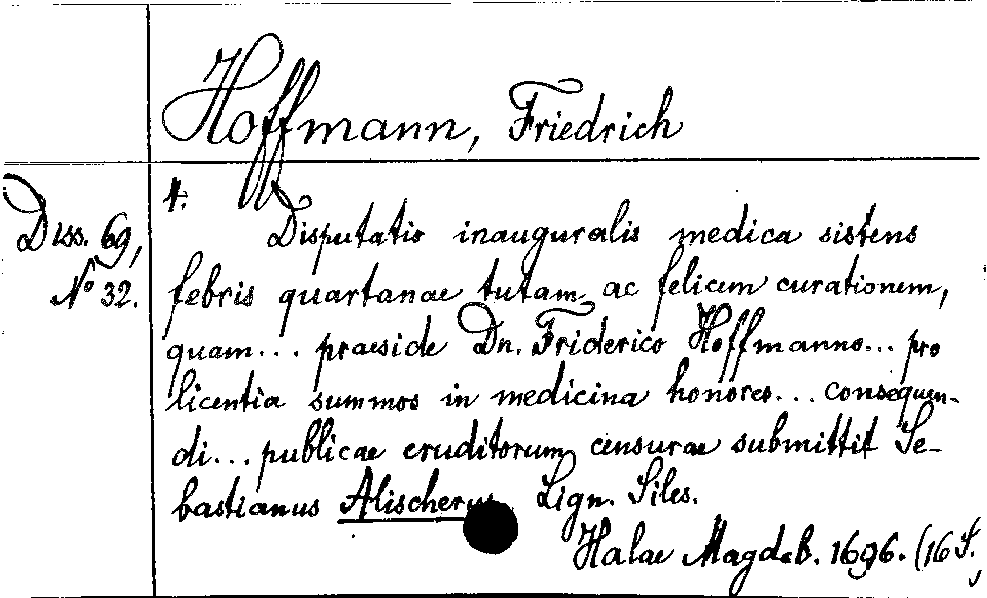 Hoffmann, Friedrich
Diss. 69,
No 32.
1.
Disputatio inauguralis medica sistens
febris quartanae tutam ac felicem curationem,
quam... praeside Dn. Friderico Hoffmanno... pro
licentia summos in medicina honores... consequen-
di... publicae eruditorum censurae submittit Se-
bastianus Alischerus Lign. Siles.
Halae Magdeb. 1696. (16 S.,